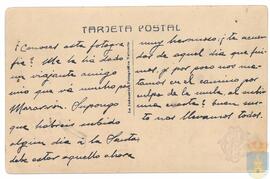 TARJETA POSTAL
¿Conoces esta fotogra-
fía? Me la ha dado
un viajante amigo
mio que va mucho por
Mazarrón. Supongo
que habréis subido
algún dia a la Santa
debe estar aquello ahora
muy hermoso. ¿Te acuer-
das de aquel día que fui-
mos, y por poco nos ma-
tamos en el camino por
culpa de la mula, al subir
una cuesta? buen sus-
to nos llevamos todos.